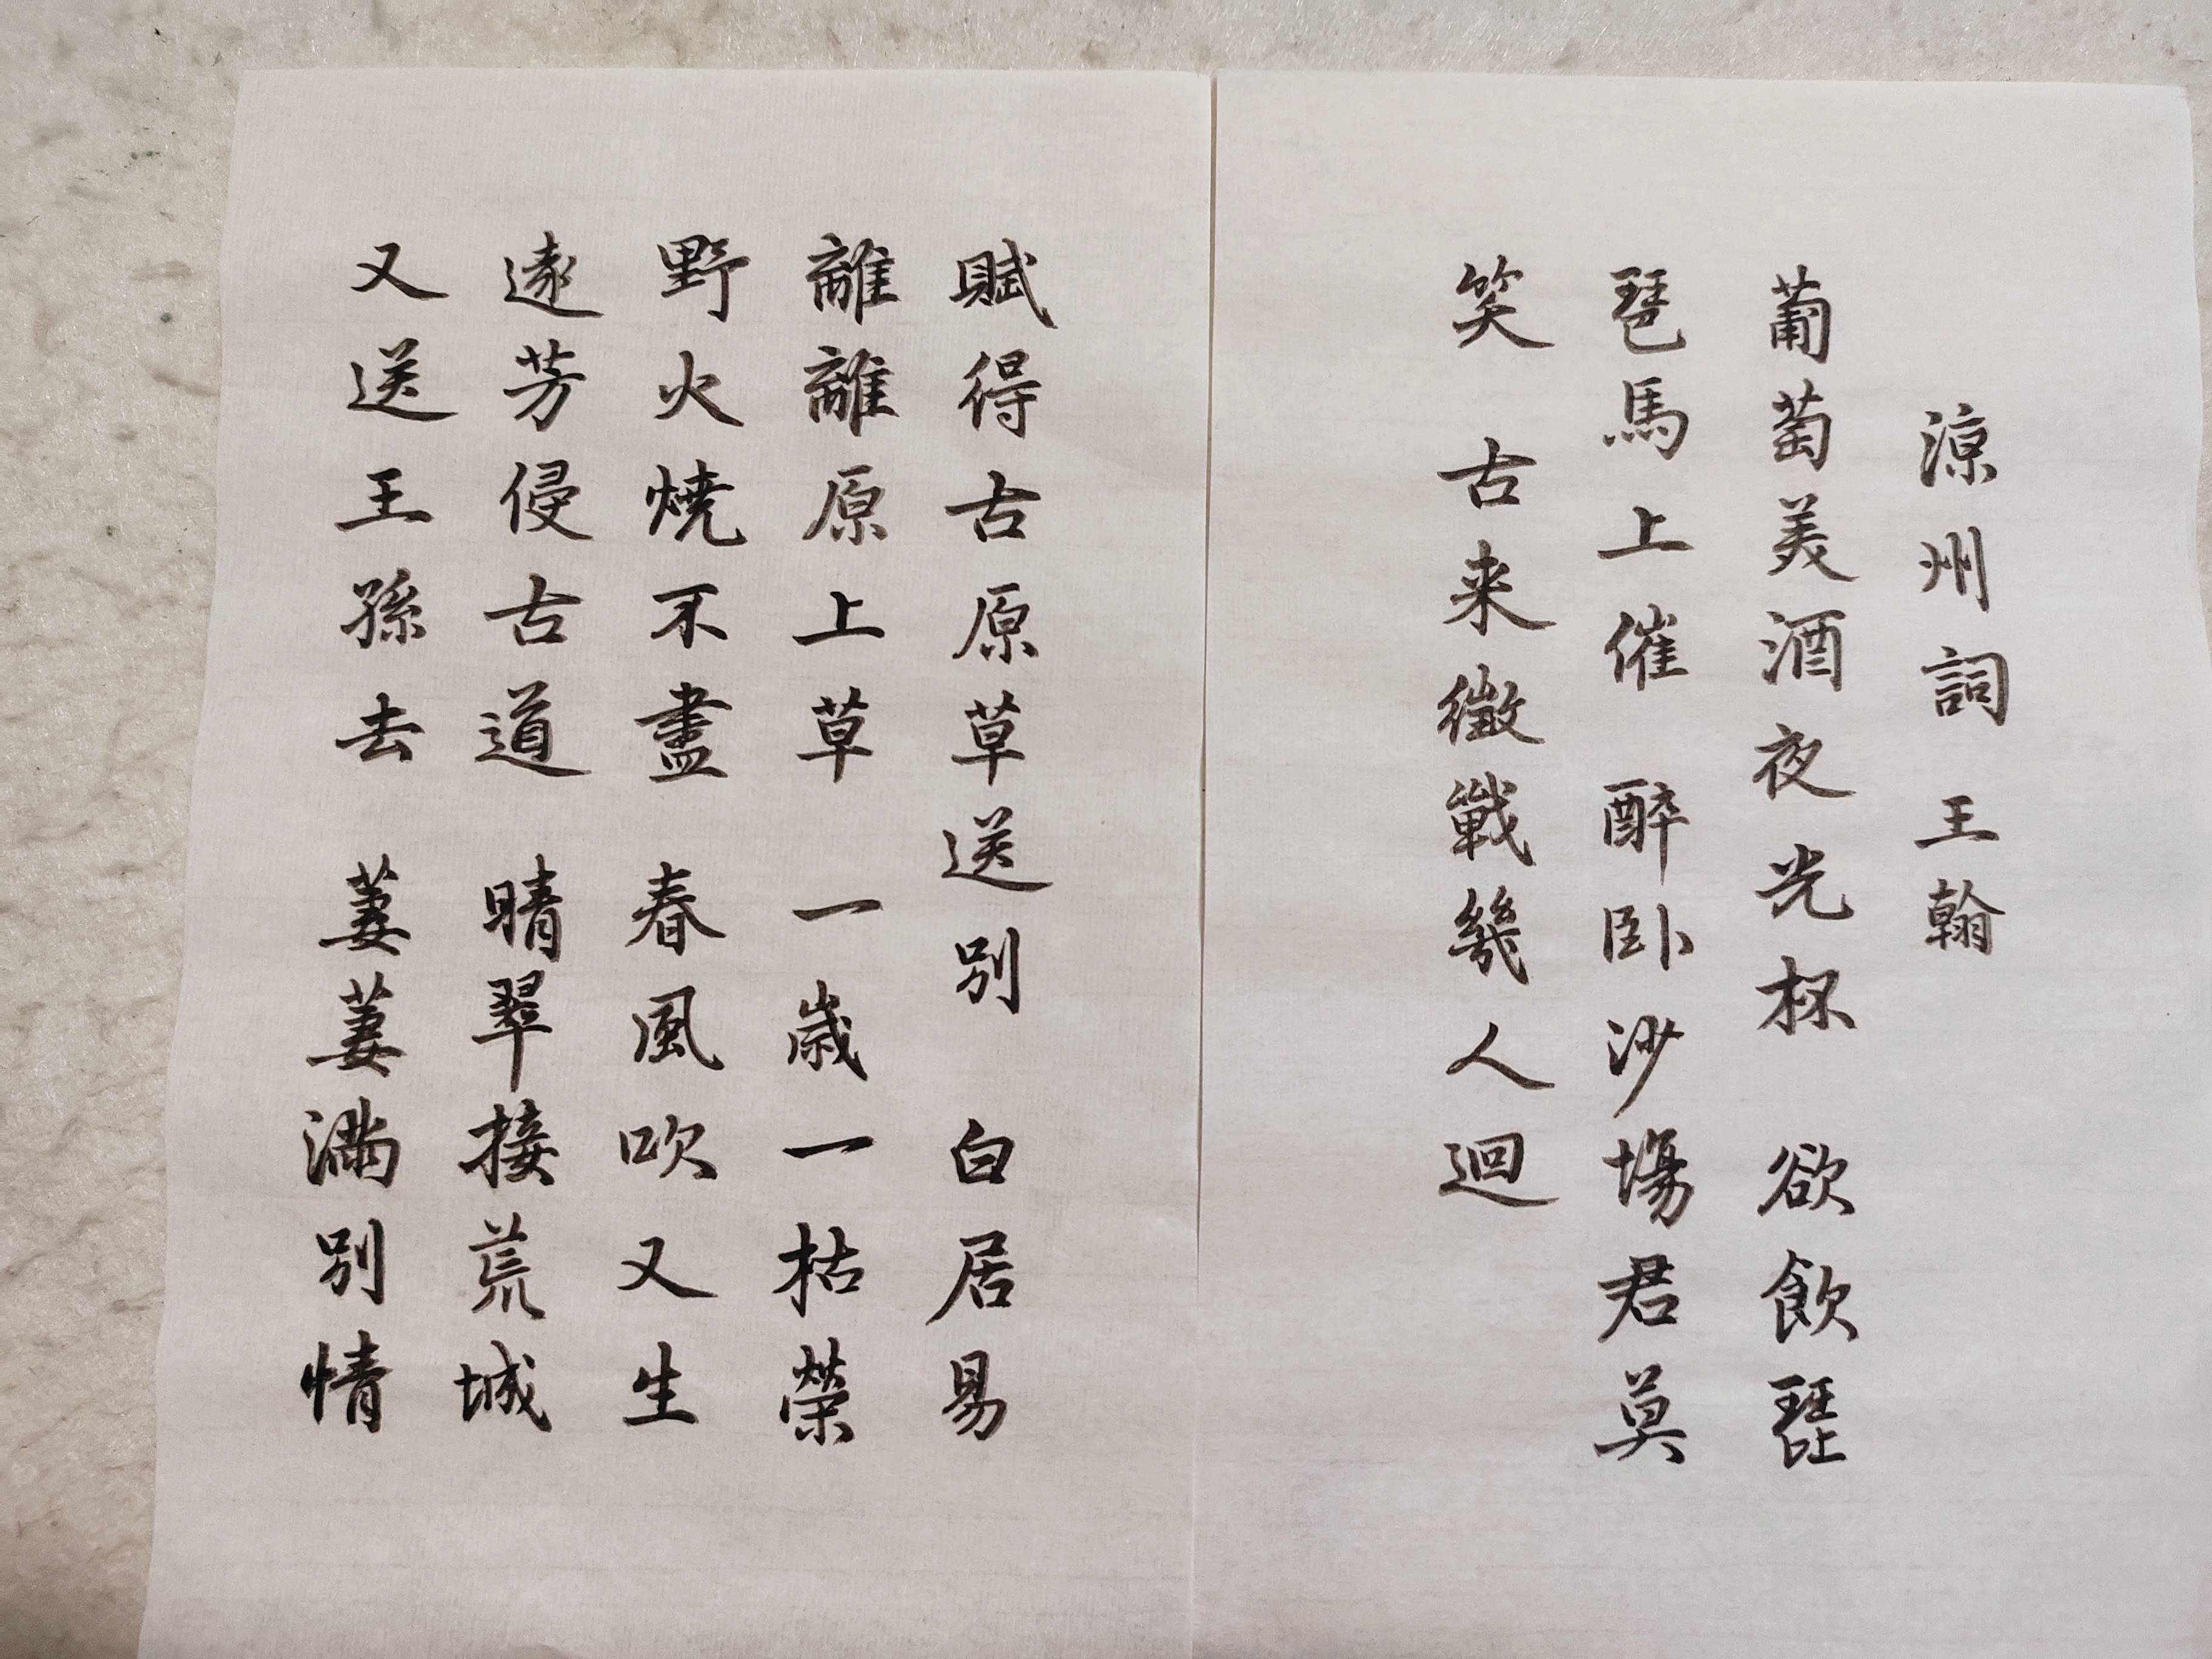 涼州詞 王翰
葡萄美酒夜光杯 欲飲琵
琶馬上催 醉卧沙場君莫
笑 古来徵戰幾人迴
賦得古原草送別 白居易
離離原上草 一歲一枯榮
野火燒不盡 春風吹又生
遠芳侵古道 晴翠接荒城
又送王孫去 萋萋滿別情